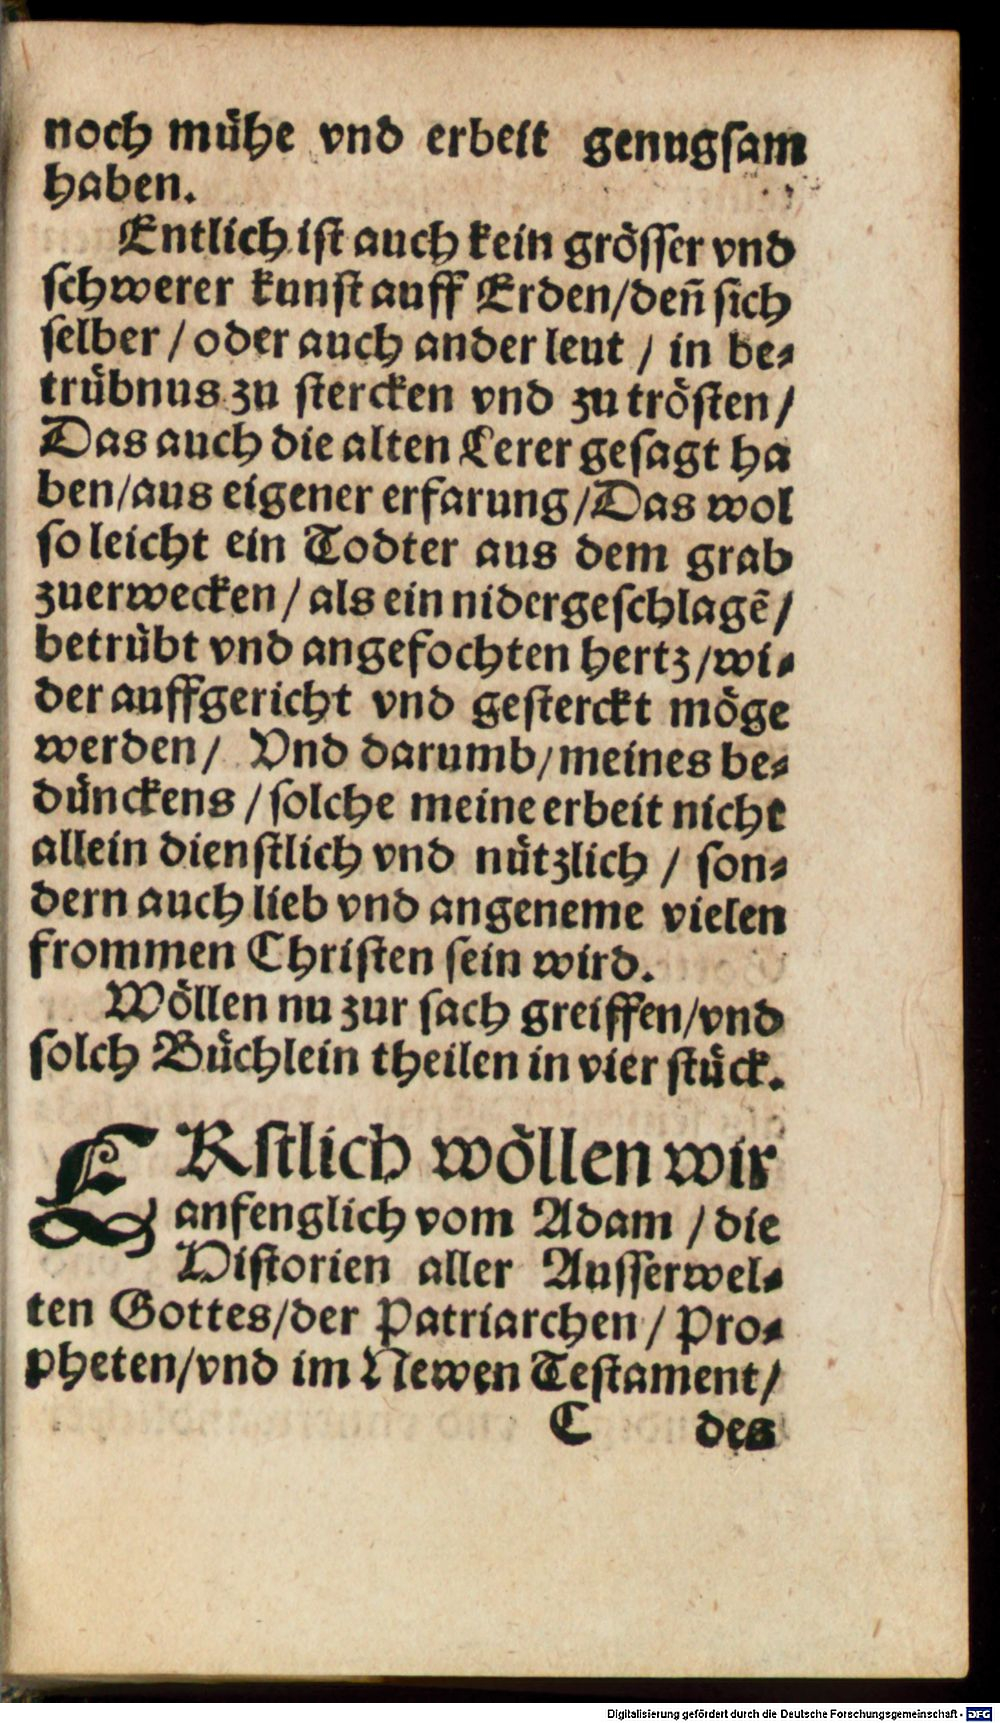 noch mühe vnd erbeit genugsam
haben.
Entlich ist auch kein grösser vnd
schwerer kunst auff Erden/deñ sich
selber / oder auch ander leut / in be-
trübnus zu stercken vnd zu trösten /
Das auch die alten Lerer gesagt ha
ben/aus eigener erfarung /Das wol
so leicht ein Todter aus dem grab
zuerwecken / als ein nidergeschlagē /
betrübt vnd angefochten hertz /wi-
der auffgericht vnd gesterckt möge
werden / Vnd darumb/meines be-
dünckens / solche meine erbeit nicht
allein dienstlich vnd nützlich / son-
dern auch lieb vnd angeneme vielen
frommen Christen sein wird.
Wöllen nu zur sach greiffen/vnd
solch Büchlein theilen in vier stück.
ERstlich wöllen wir
anfenglich vom Adam / die
Historien aller Ausserwel-
ten Gottes/der Patriarchen / Pro-
pheten/vnd im Newen Testament /
C des
Digitalisierung gefördert durch die Deutsche Forschungsgemeinschaft - DFG